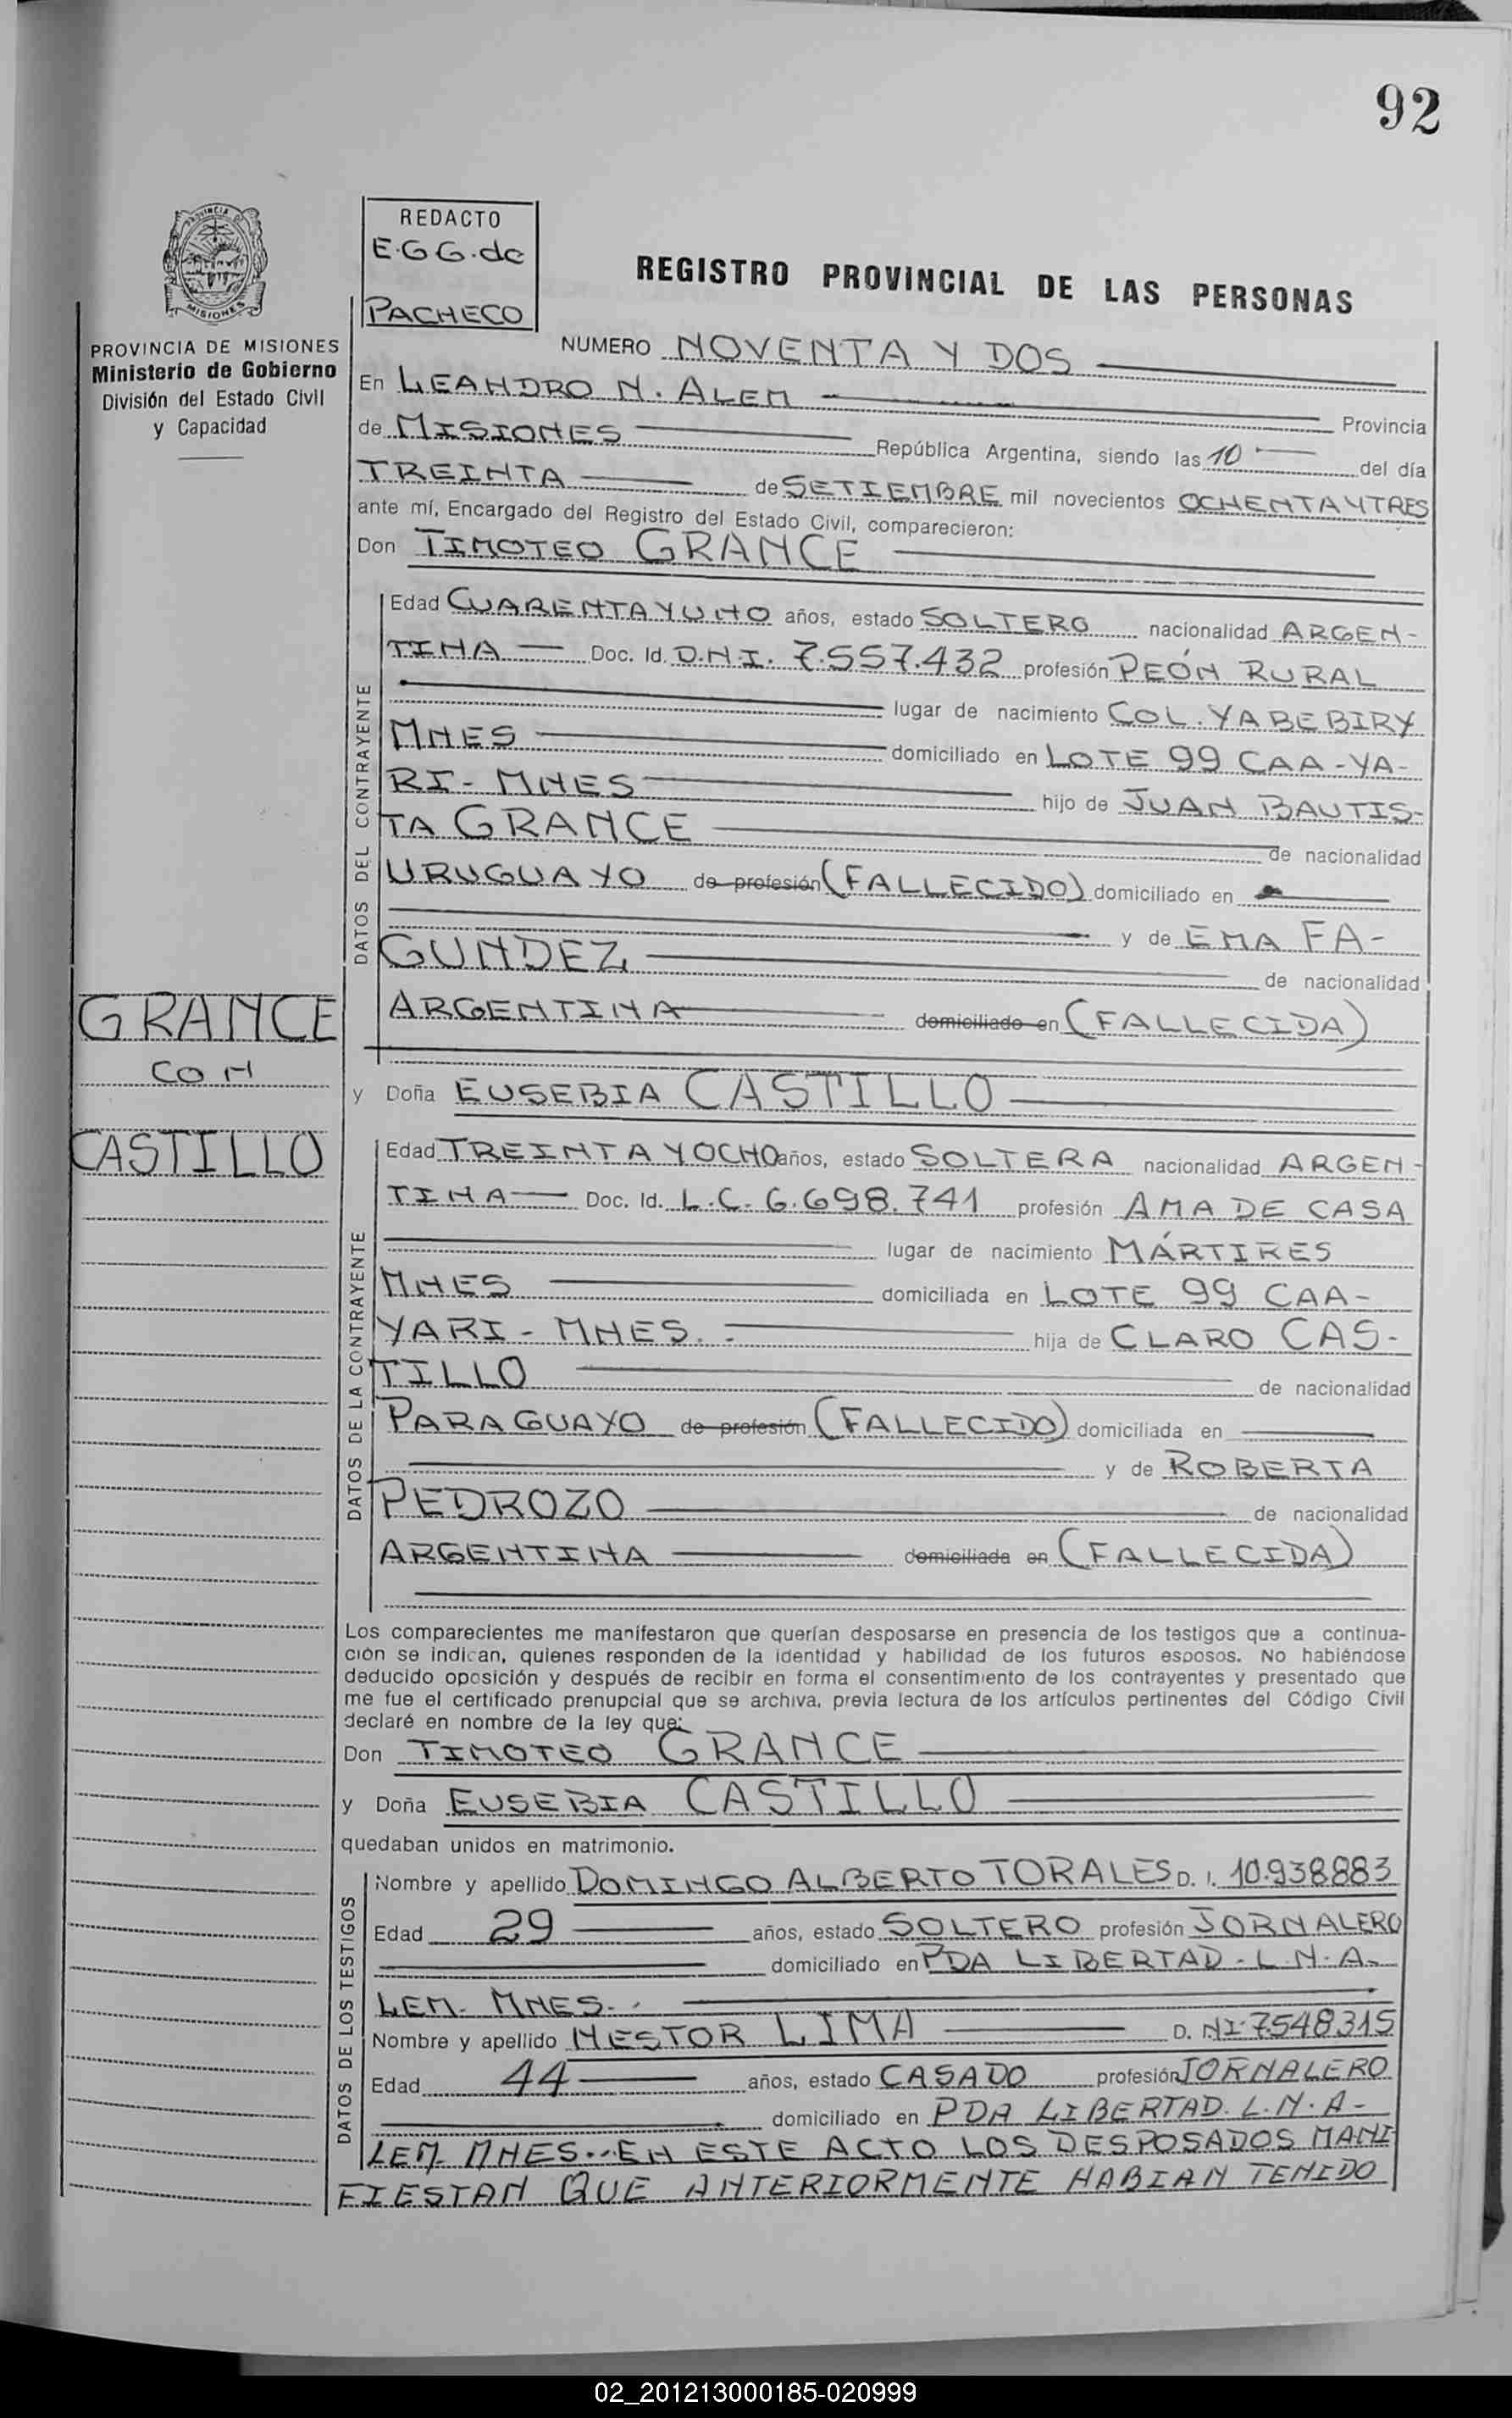 92
PROVINCIA DE MISIONES
REDACTO
E.G G. de
PACHECO
REGISTRO PROVINCIAL DE LAS PERSONAS
PROVINCIA DE MISIONES
Ministerio de Gobierno
División del Estado Civil
y Capacidad
NUMERO NOVENTA Y DOS
En LEANDRO N. ALEM Provincia
de MISIONES República Argentina, siendo las 10 del día
TREINTA de SETIEMBRE mil novecientos OCHENTA Y TRES
ante mí, Encargado del Registro del Estado Civil, comparecieron:
Don TIMOTEO GRANCE
DATOS DEL CONTRAYENTE
Edad CUARENTA Y UNO años, estado SOLTERO nacionalidad ARGEN-
TINA Doc. Id. D.N.I. 7.557.432 profesión PEÓN RURAL
lugar de nacimiento COL. YABEBIRY
MNES domiciliado en LOTE 99 CAA-YA-
RI - MNES hijo de JUAN BAUTIS-
TA GRANCE de nacionalidad
URUGUAYO de profesión (FALLECIDO) domiciliado en
y de EMA FA-
GUNDEZ de nacionalidad
ARGENTINA domiciliado en (FALLECIDA)
GRANCE
CON
CASTILLO
y Doña EUSEBIA CASTILLO
DATOS DE LA CONTRAYENTE
Edad TREINTA Y OCHO años, estado SOLTERA nacionalidad ARGEN-
TINA Doc. Id. L.C. 6.698.741 profesión AMA DE CASA
lugar de nacimiento MÁRTIRES
MNES domiciliada en LOTE 99 CAA-
YARI - MNES. hija de CLARO CAS-
TILLO de nacionalidad
PARAGUAYO de profesión (FALLECIDO) domiciliada en
y de ROBERTA
PEDROZO de nacionalidad
ARGENTINA domiciliada en (FALLECIDA)
Los comparecientes me manifestaron que querían desposarse en presencia de los testigos que a continua-
ción se indican, quienes responden de la identidad y habilidad de los futuros esposos. No habiéndose
deducido oposición y después de recibir en forma el consentimiento de los contrayentes y presentado que
me fue el certificado prenupcial que se archiva, previa lectura de los artículos pertinentes del Código Civil
declaré en nombre de la ley que:
Don TIMOTEO GRANCE
y Doña EUSEBIA CASTILLO
quedaban unidos en matrimonio.
DATOS DE LOS TESTIGOS
Nombre y apellido DOMINGO ALBERTO TORALES D. I. 10.938883
Edad 29 años, estado SOLTERO profesión JORNALERO
domiciliado en PDA LIBERTAD - L. N. A-
LEM. MNES.
Nombre y apellido NESTOR LIMA D. NI 7548315
Edad 44 años, estado CASADO profesión JORNALERO
domiciliado en PDA LIBERTAD. L. N. A-
LEM MNES... EN ESTE ACTO LOS DESPOSADOS MANI
FIESTAN QUE ANTERIORMENTE HABIAN TENIDO
02_201213000185-020999